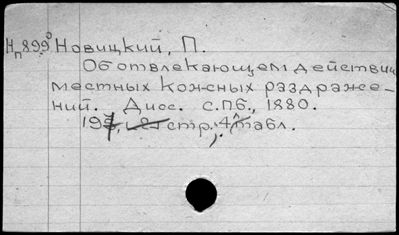 Нп899 Новицкий, П.
Об отвлекающем действии
местных кожных раздраже-
ний. Дисс. с.Пб., 1880.
стр., 4 табл.